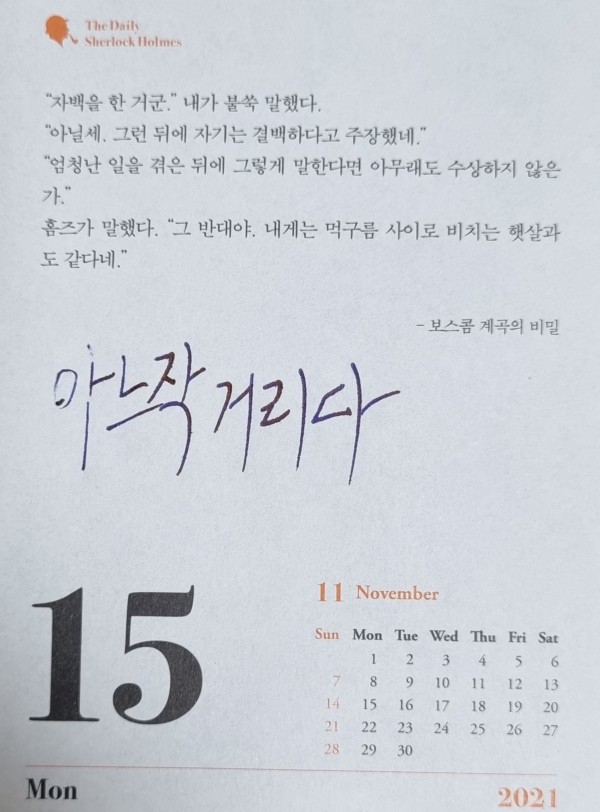 The Daily
Sherlock Holmes
“자백을 한 거군.” 내가 불쑥 말했다.
“아닐세. 그런 뒤에 자기는 결백하다고 주장했네.”
“엄청난 일을 겪은 뒤에 그렇게 말한다면 아무래도 수상하지 않은
가.”
홈즈가 말했다. “그 반대야. 내게는 먹구름 사이로 비치는 햇살과
도 같다네.”
- 보스콤 계곡의 비밀
아느작거리다
15
11 November
Sun Mon Tue Wed Thu Fri Sat
1 2 3 4 5 6
7 8 9 10 11 12 13
14 15 16 17 18 19 20
21 22 23 24 25 26 27
28 29 30
Mon
2021